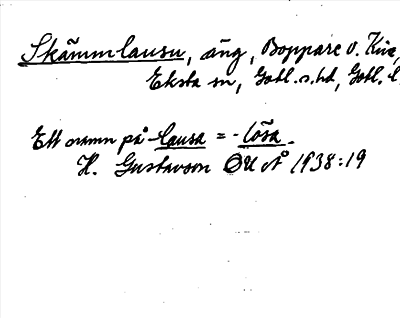 Skämmlausu, äng, Boppare v. Kve,
Eksta sn, Gotl. s. hd, Gotl. l
Ett namn på -lausa = -lösa.
H. Gustavson ØUÅ 1938:19